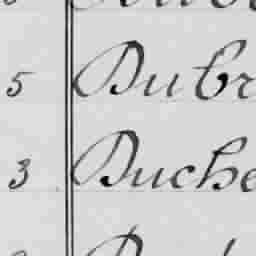 5 Dubr
3 Duche